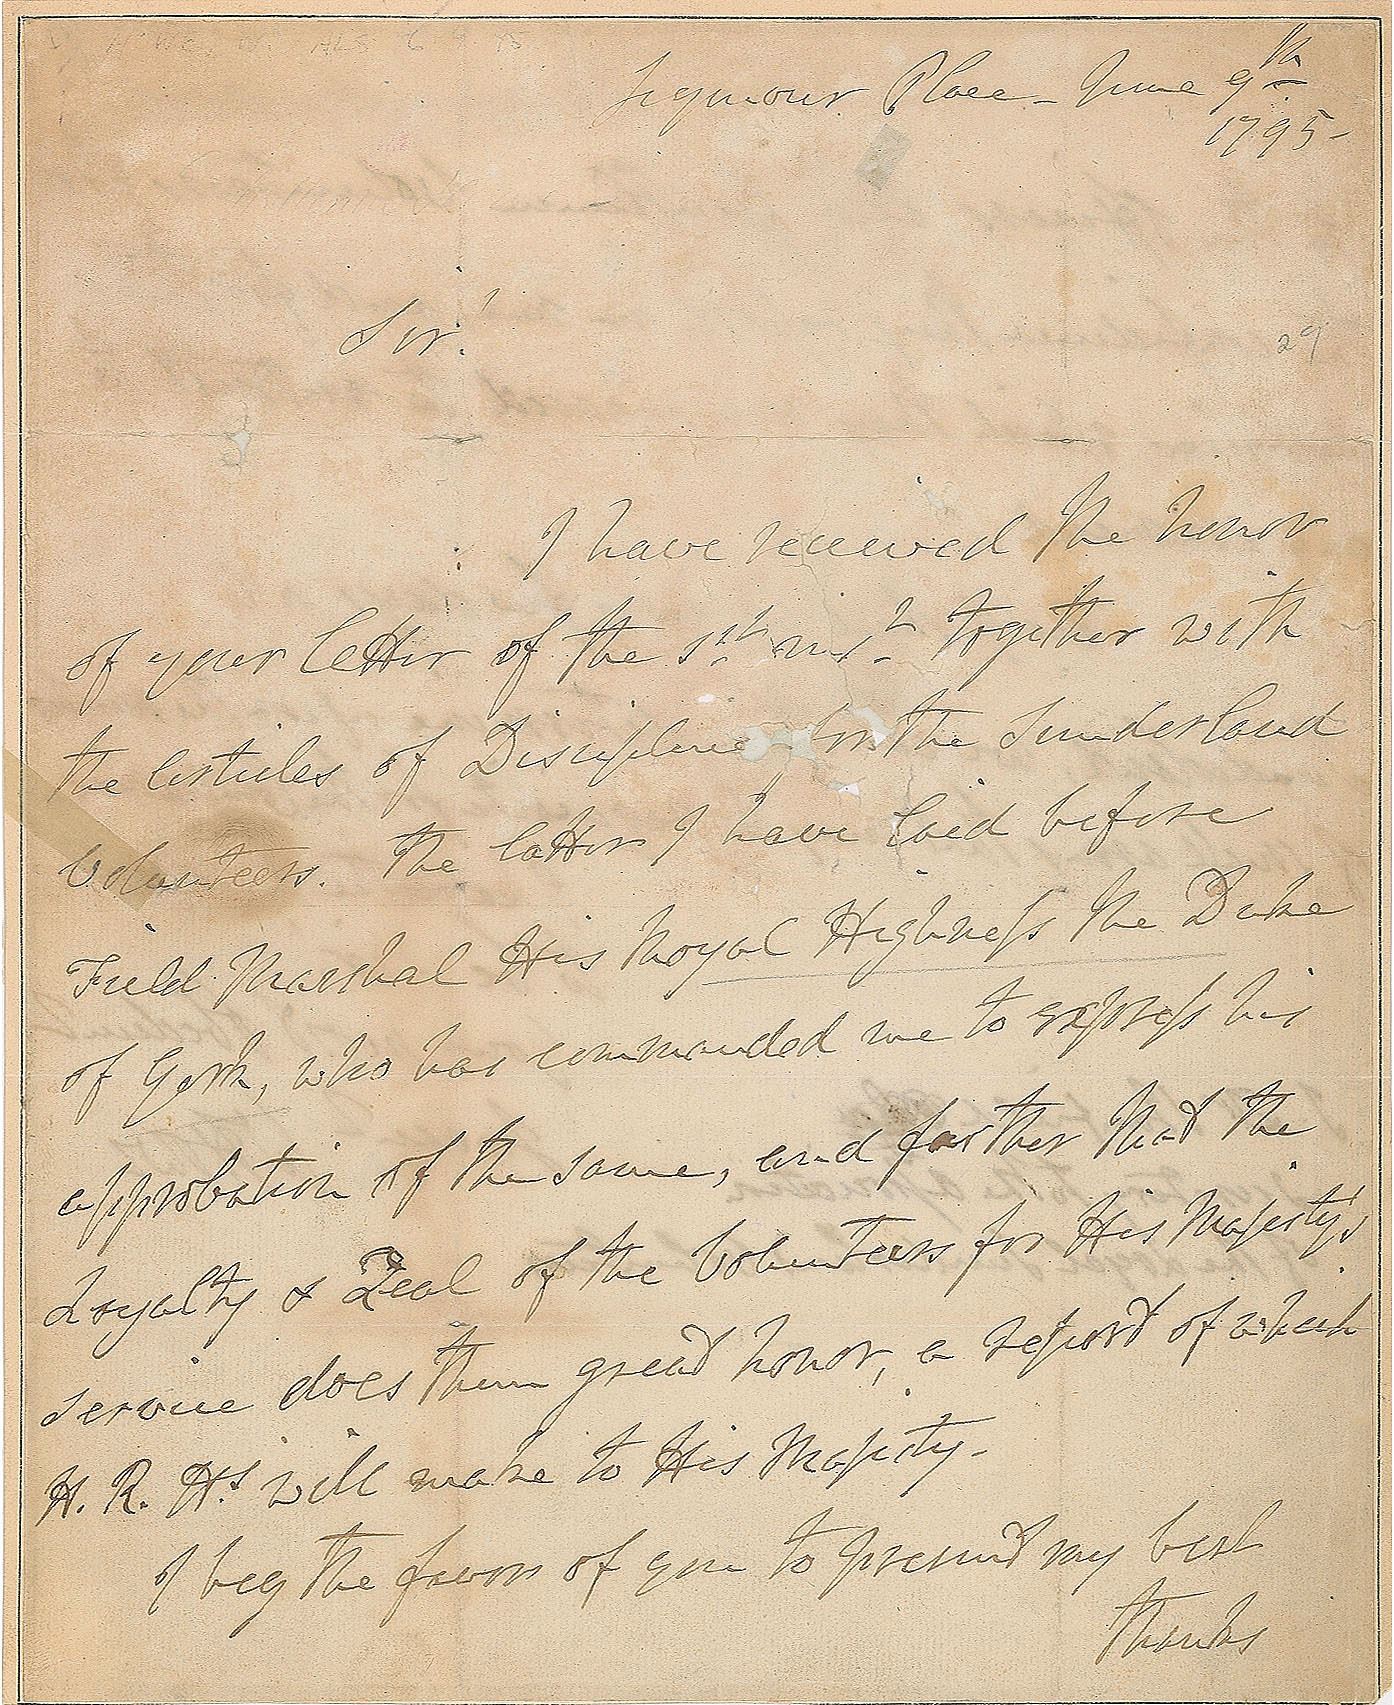 Seymour Place - June 9th
1795-
29
Sir!
I have received the honor
of your letter of the 1st inst together with
the Articles of Discipline for the Sunderland
Volunteers. The latter I have laid before
Field Marshal His Royal Highness the Duke
of York, who has commanded me to express his
approbation of the same, and farther that the
Loyalty & Zeal of the Volunteers for His Majesty's
service does them great honor, a report of which
H. R. Hs will make to His Majesty-
I beg the favor of you to present my best
thanks